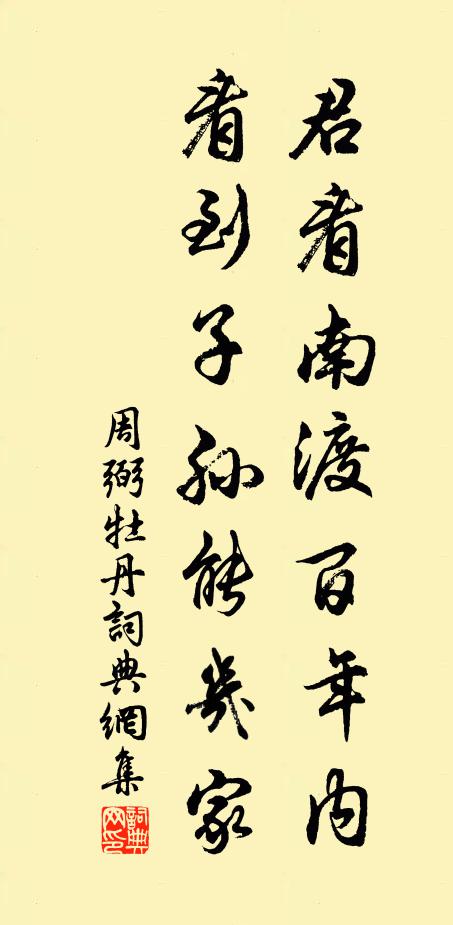 君看南渡百年内
看到子孫能幾家
周弼牡丹詞典網集
詞典网印